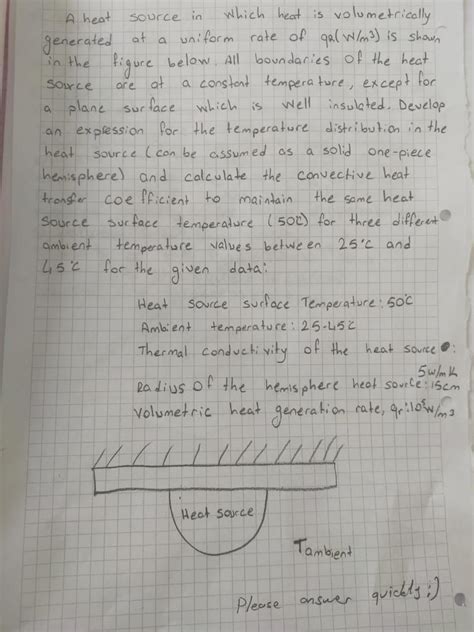 A heat source in which heat is volumetrically
generated at a uniform rate of qr(W/m³) is shown
in the figure below. All boundaries of the heat
source are at a constant temperature, except for
a plane surface which is well insulated. Develop
an expression for the temperature distribution in the
heat source (can be assumed as a solid one-piece
hemisphere) and calculate the convective heat
transfer coefficient to maintain the same heat
source surface temperature (50℃) for three different
ambient temperature values between 25℃ and
45℃ for the given data:
Heat source surface Temperature: 50℃
Ambient temperature: 25-45℃
Thermal conductivity of the heat source :
5w/mk
Radius of the hemisphere heat source: 15cm
Volumetric heat generation rate, qr: 10⁵w/m3
Heat source
Tambient
Please answer quickly ;)